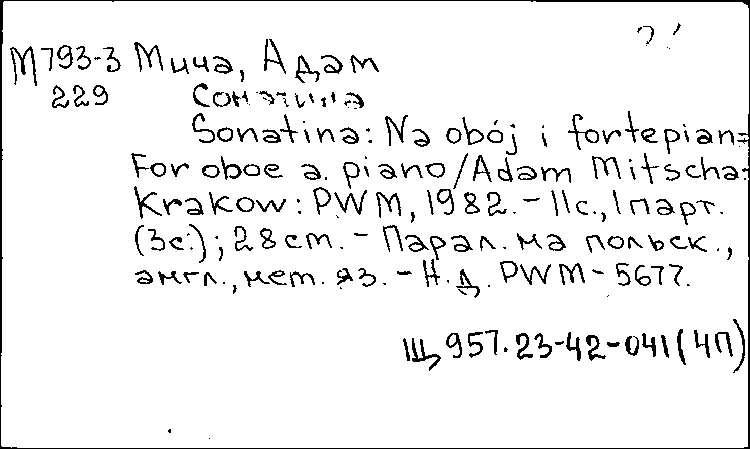 М793-3 Мича, Адам
229 Сонатина
Sonatina: Na obój i fortepian=
For oboe a. piano/Adam Mitscha.-
Krakow: PWM, 1982.-11с., 1парт.
(3с.); 28cm.- Парал. на польск.,
англ., нем. яз.- Н.д. PWM-5677.
Щ957.23-42-041(4П)